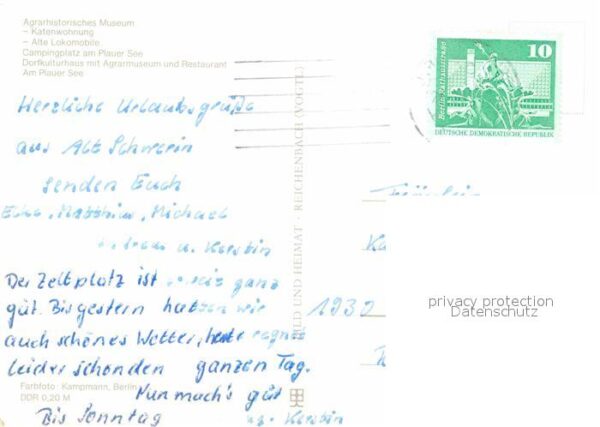 Agrarhistorisches Museum
– Katenwohnung
– Alte Lokomobile
Campingplatz am Plauer See
Dorfkulturhaus mit Agrarmuseum und Restaurant
Am Plauer See
Herzliche Urlaubsgrüße
aus Alt Schwerin
senden Euch
Matthias, Michael
u. Kerstin
Der Zeltplatz ist ganz
gut. Bis gestern hatten wir
auch schönes Wetter, heute regnet
leider schon den ganzen Tag.
Nun mach's gut
Bis Sonntag
Kerstin
Farbfoto: Kampmann, Berlin
DDR 0,20 M
BILD UND HEIMAT · REICHENBACH (VOGTL)
10
Berlin, Rathausstraße
DEUTSCHE DEMOKRATISCHE REPUBLIK
Fräulein
1930
privacy protection
Datenschutz